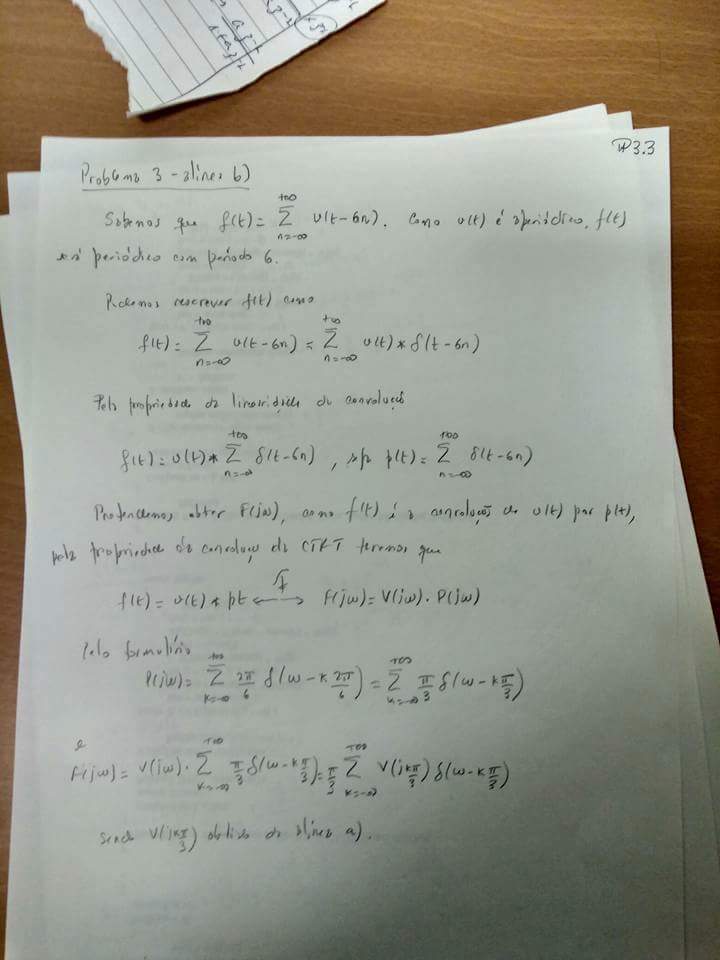 P3.3
Problema 3 - alínea b)
Sabemos que f(t) = \sum_{n=-\infty}^{+\infty} v(t-6n). Como v(t) é aperiódico, f(t)
será periódico com período 6.
Podemos reescrever f(t) como
f(t) = \sum_{n=-\infty}^{+\infty} v(t-6n) = \sum_{n=-\infty}^{+\infty} v(t) * δ(t-6n)
Pela propriedade da linearidade da convolução
f(t) = v(t) * \sum_{n=-\infty}^{+\infty} δ(t-6n), p(t) = \sum_{n=-\infty}^{+\infty} δ(t-6n)
Pretendemos obter F(jω), como f(t) é a convolução de v(t) por p(t),
pela propriedade da convolução da CTFT teremos que
f(t) = v(t) * pt ⟷ F(jω) = V(jω) . P(jω)
Pelo formulário
P(jω) = \sum_{k=-\infty}^{+\infty} \frac{2π}{6} δ(ω - k\frac{2π}{6}) = \sum_{k=-\infty}^{+\infty} \frac{π}{3} δ(ω - k\frac{π}{3})
e
F(jω) = V(jω) . \sum_{k=-\infty}^{+\infty} \frac{π}{3} δ(ω - k\frac{π}{3}) = \frac{π}{3} \sum_{k=-\infty}^{+\infty} V(j\frac{kπ}{3}) δ(ω - k\frac{π}{3})
sendo V(j\frac{kπ}{3}) obtido da alínea a).